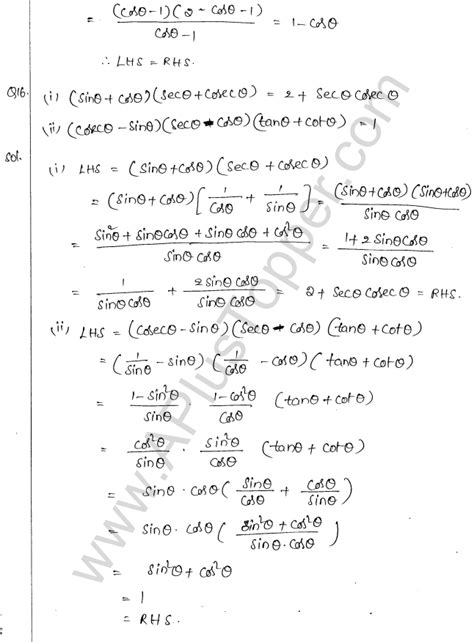 = (cosθ-1)(2-cosθ-1) / cosθ-1 = 1-cosθ
∴ LHS = RHS.
Q16. (i) (sinθ + cosθ)(secθ + cosecθ) = 2 + secθ cosecθ
(ii) (cosecθ - sinθ)(secθ - cosθ)(tanθ + cotθ) = 1
Sol. (i) LHS = (sinθ + cosθ)(secθ + cosecθ)
= (sinθ + cosθ)[1/cosθ + 1/sinθ] = (sinθ + cosθ)(sinθ + cosθ) / sinθ cosθ
= sin²θ + sinθcosθ + sinθ cosθ + cos²θ / sinθ cosθ = 1 + 2 sinθcosθ / sinθ cosθ
= 1 / sinθ cosθ + 2 sinθ cosθ / sinθ cosθ = 2 + secθ cosecθ = RHS.
(ii) LHS = (cosecθ - sinθ)(secθ - cosθ)(tanθ + cotθ)
= (1/sinθ - sinθ)(1/cosθ - cosθ)(tanθ + cotθ)
= 1-sin²θ / sinθ · 1-cos²θ / cosθ (tanθ + cotθ)
= cos²θ / sinθ · sin²θ / cosθ (tanθ + cotθ)
= sinθ · cosθ (sinθ/cosθ + cosθ/sinθ)
= sinθ · cosθ (sin²θ + cos²θ / sinθ · cosθ)
= sin²θ + cos²θ
= 1
= RHS.
www.APlusTopper.com